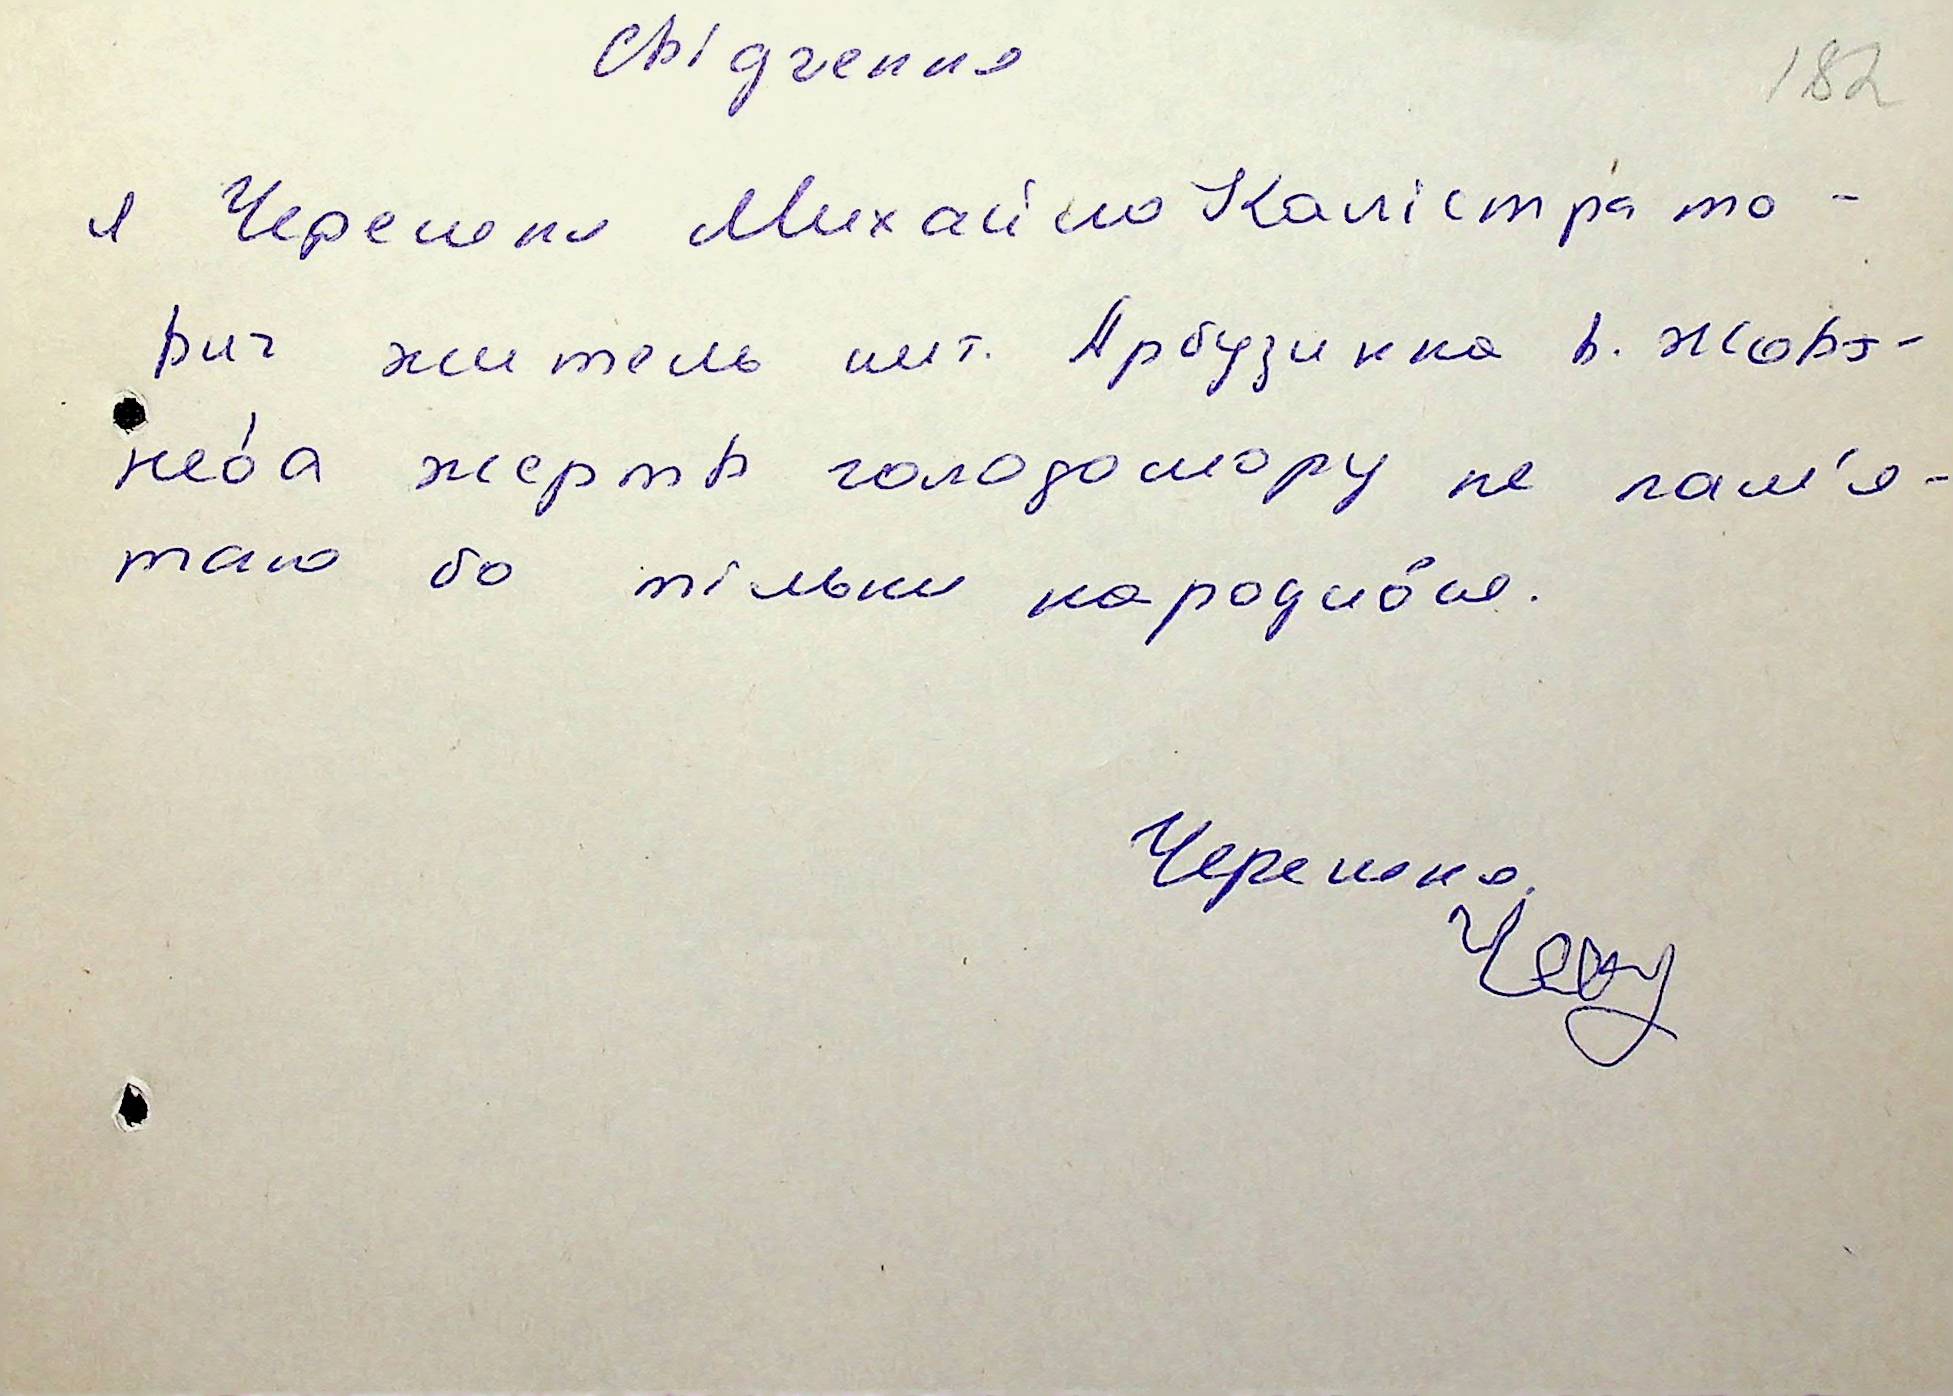 Свідчення
182
я Черешня Михайло Калістрато-
вич житель смт. Арбузинка в. Жовт-
нева жертв голодомору не пам'я-
таю бо тільки народився.
Черешня.